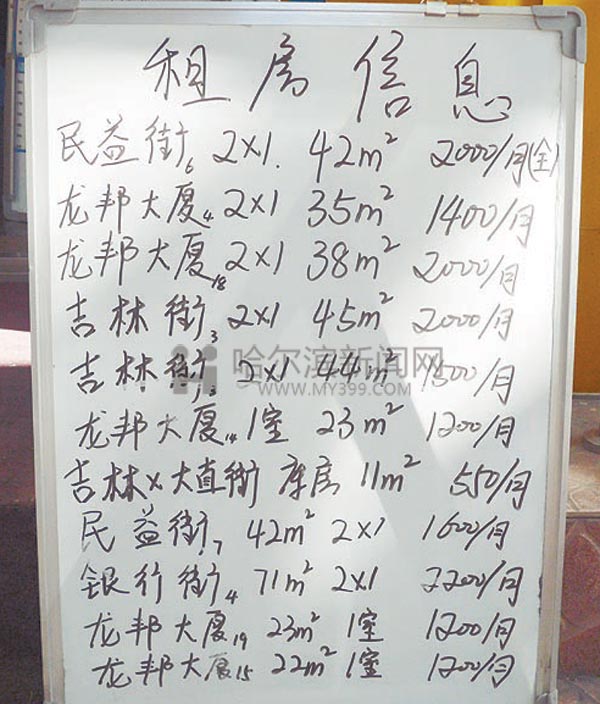 租房信息
民益街6 2×1. 42m² 2000/月(全)
龙邦大厦4 2×1 35m² 1400/月
龙邦大厦18 2×1 38m² 2000/月
吉林街3 2×1 45m² 2000/月
吉林街3 2×1 44m² 1500/月
哈尔滨新闻网
WWW.MY399.COM
龙邦大厦14 1室 23m² 1200/月
吉林×大直街 库房 11m² 550/月
民益街7 42m² 2×1 1600/月
银行街4 71m² 2×1 2200/月
龙邦大厦19 23m² 1室 1200/月
龙邦大厦15 22m² 1室 1200/月